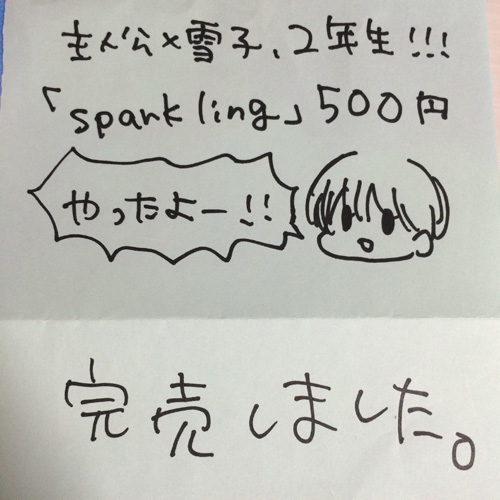 主人公×雪子、2年生!!!
「sparkling」500円
やったよー!!
完売しました。